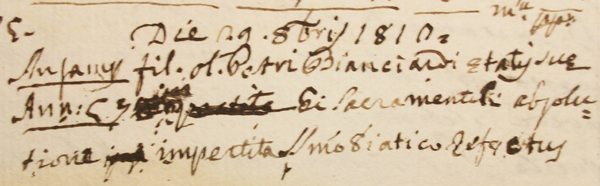 Die 29. 8bris 1810=
Ansanus fil. ol. Petri Bianciardi ętatis suę
Ann: 57 Ei Sacramentali absolu=
tione impertita SSmo Viatico Refectus